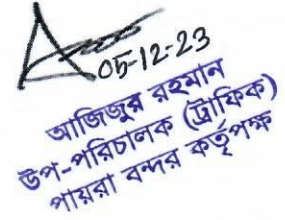 05-12-23
আজিজুর রহমান
উপ-পরিচালক (ট্রাফিক)
পায়রা বন্দর কর্তৃপক্ষ